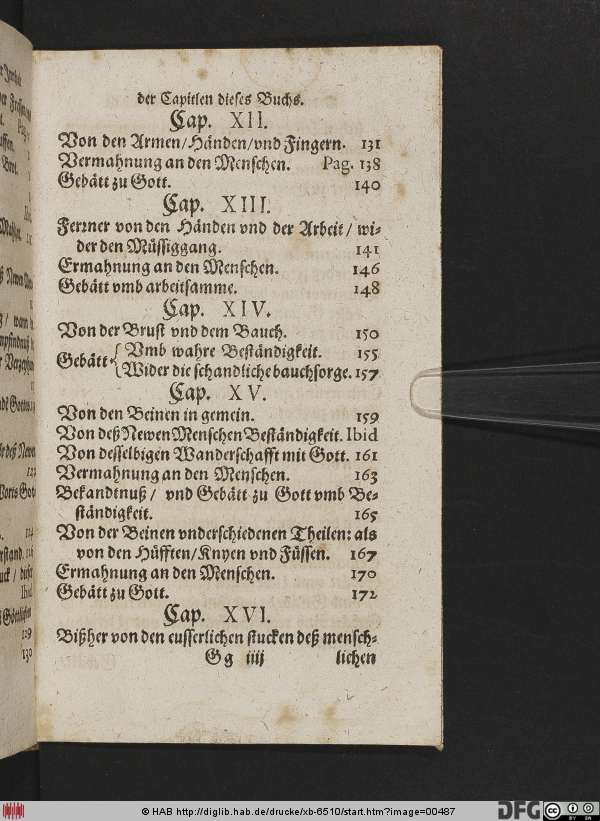 der Capitlen dieses Buchs.
Cap. XII.
Von den Armen/Händen/vnd Fingern. 131
Vermahnung an den Menschen. Pag. 138
Gebätt zu Gott. 140
Cap. XIII.
Ferrner von den Händen vnd der Arbeit / wi-
der den Müssiggang. 141
Ermahnung an den Menschen. 146
Gebätt vmb arbeitsamme. 148
Cap. XIV.
Von der Brust vnd dem Bauch. 150
Gebätt { Vmb wahre Beständigkeit. 155
{ Wider die schandliche bauchsorge. 157
Cap. XV.
Von den Beinen in gemein. 159
Von deß Newen Menschen Beständigkeit. Ibid
Von desselbigen Wanderschafft mit Gott. 161
Vermahnung an den Menschen. 163
Bekandtnuß / vnd Gebätt zu Gott vmb Be-
ständigkeit. 165
Von der Beinen vnderschiedenen Theilen: als
von den Hüfften/Knyen vnd Füssen. 167
Ermahnung an den Menschen. 170
Gebätt zu Gott. 172
Cap. XVI.
Bißher von den eusserlichen stucken deß mensch-
Gg iiij lichen
© HAB http://diglib.hab.de/drucke/xb-6510/start.htm?image=00487
DFG